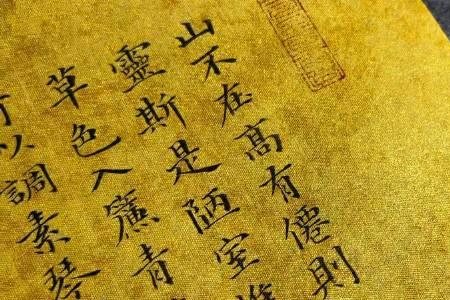 山不在高有僊則
靈斯是陋室惟
草色入簾青
可以調素琴